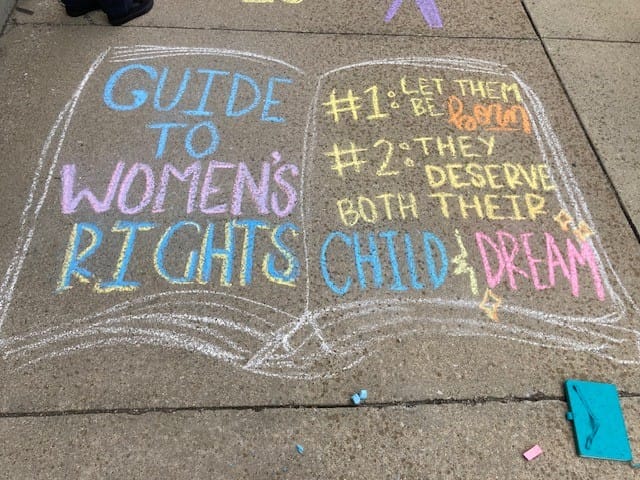 GUIDE
TO
WOMEN'S
RIGHTS
#1: LET THEM
BE born
#2: THEY
DESERVE
BOTH THEIR
CHILD & DREAM